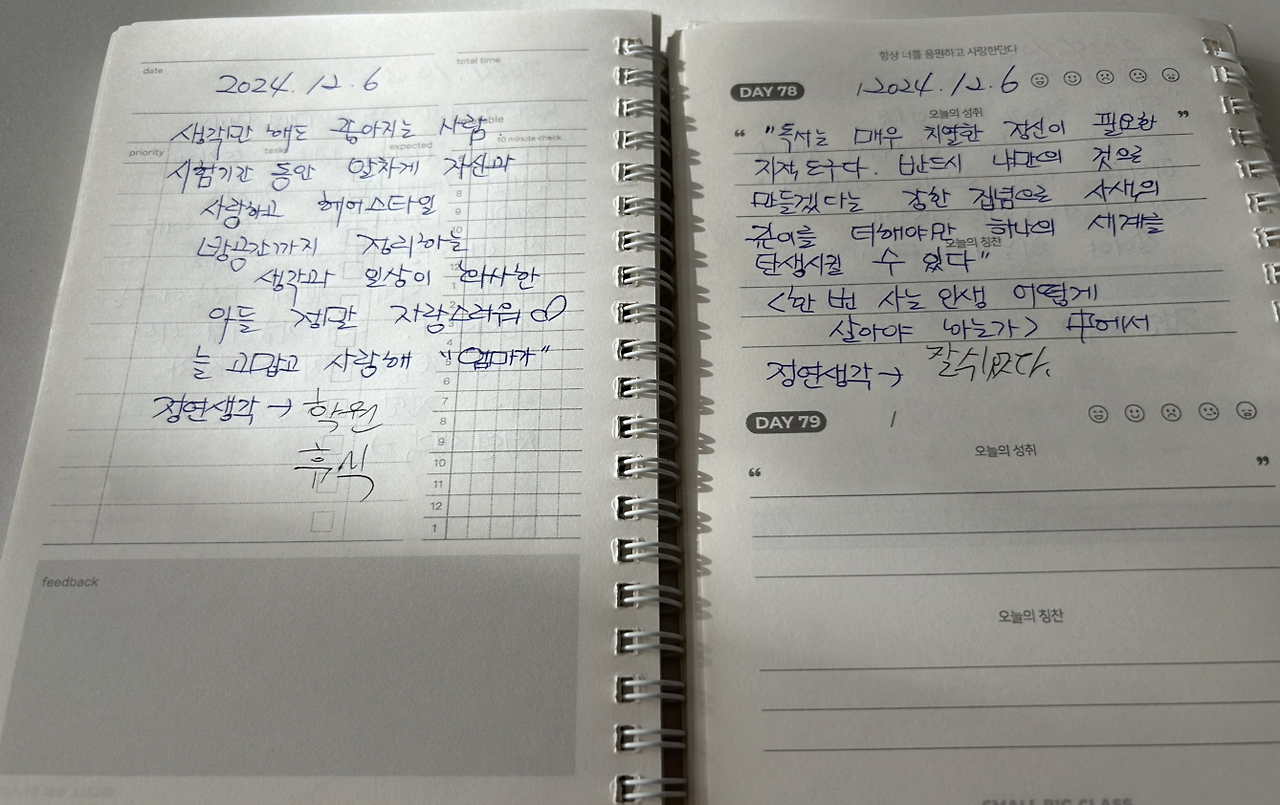 date
total time
2024. 12. 6
생각만 해도 좋아지는 사람.
priority
task
expected
10 minute check
시험기간 동안 알차게 자신과
사랑하고 헤어스타일
방공간까지 정리하는
생각과 외상이 화사한
아들 정말 자랑스러워
늘 고맙고 사랑해 "엄마가"
정연생각 → 학원
휴식
8
9
10
1
2
4
5
6
7
8
9
10
11
12
1
feedback
항상 너를 응원하고 사랑한단다
DAY 78
2024. 12. 6
오늘의 성취
"독서는 매우 치열한 정신이 필요한
지적 도구다. 반드시 나만의 것으로
만들겠다는 강한 집념으로 사색의
깊이를 더해야만 하나의 세계를
오늘의 칭찬
탄생시킬 수 있다"
<한 번 사는 인생 어떻게
살아야 하는가> 中에서
정연생각 → 잘 쉬었다.
DAY 79 /
오늘의 성취
오늘의 칭찬